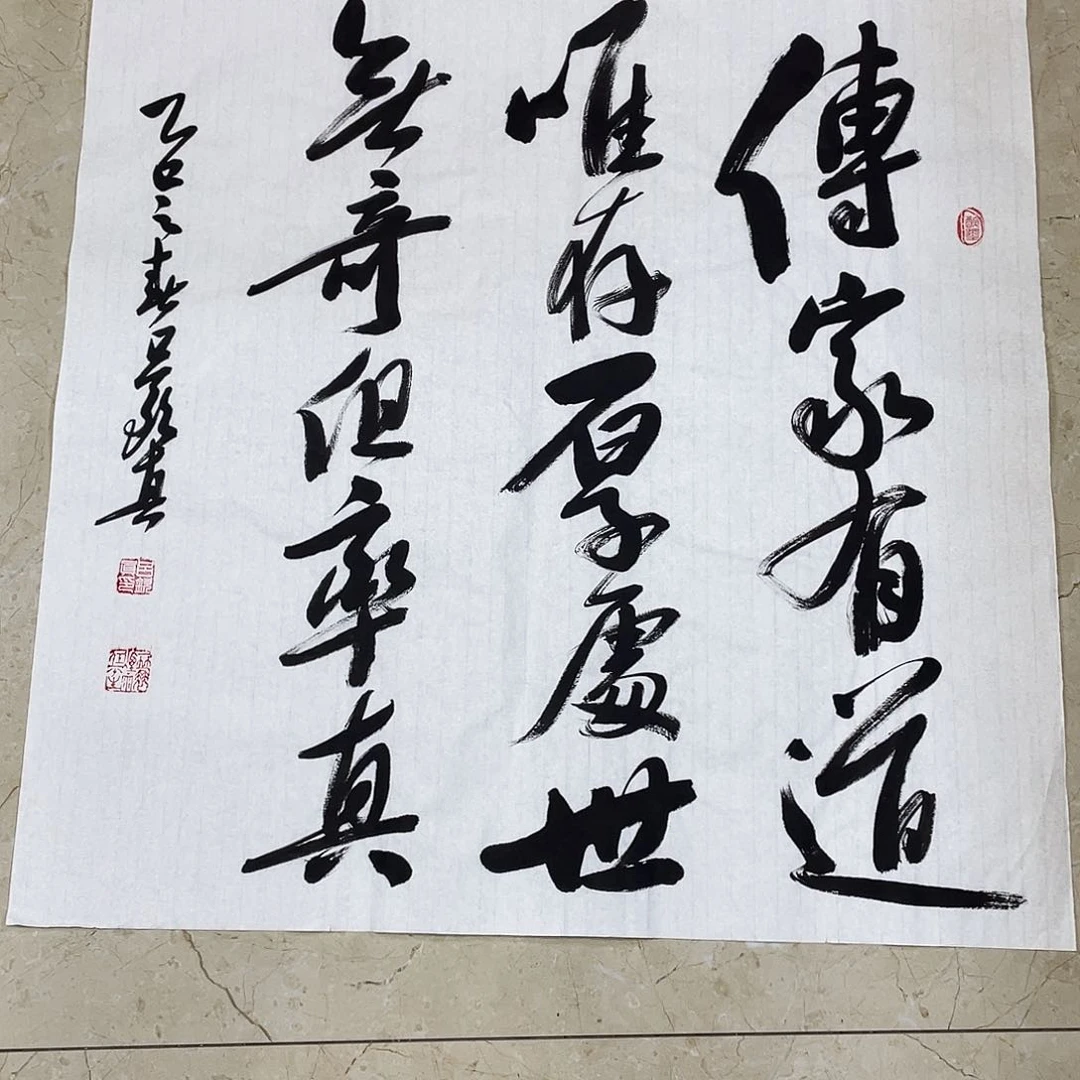 傳家有道
唯存厚處世
無奇但率真
乙巳之春吕
真